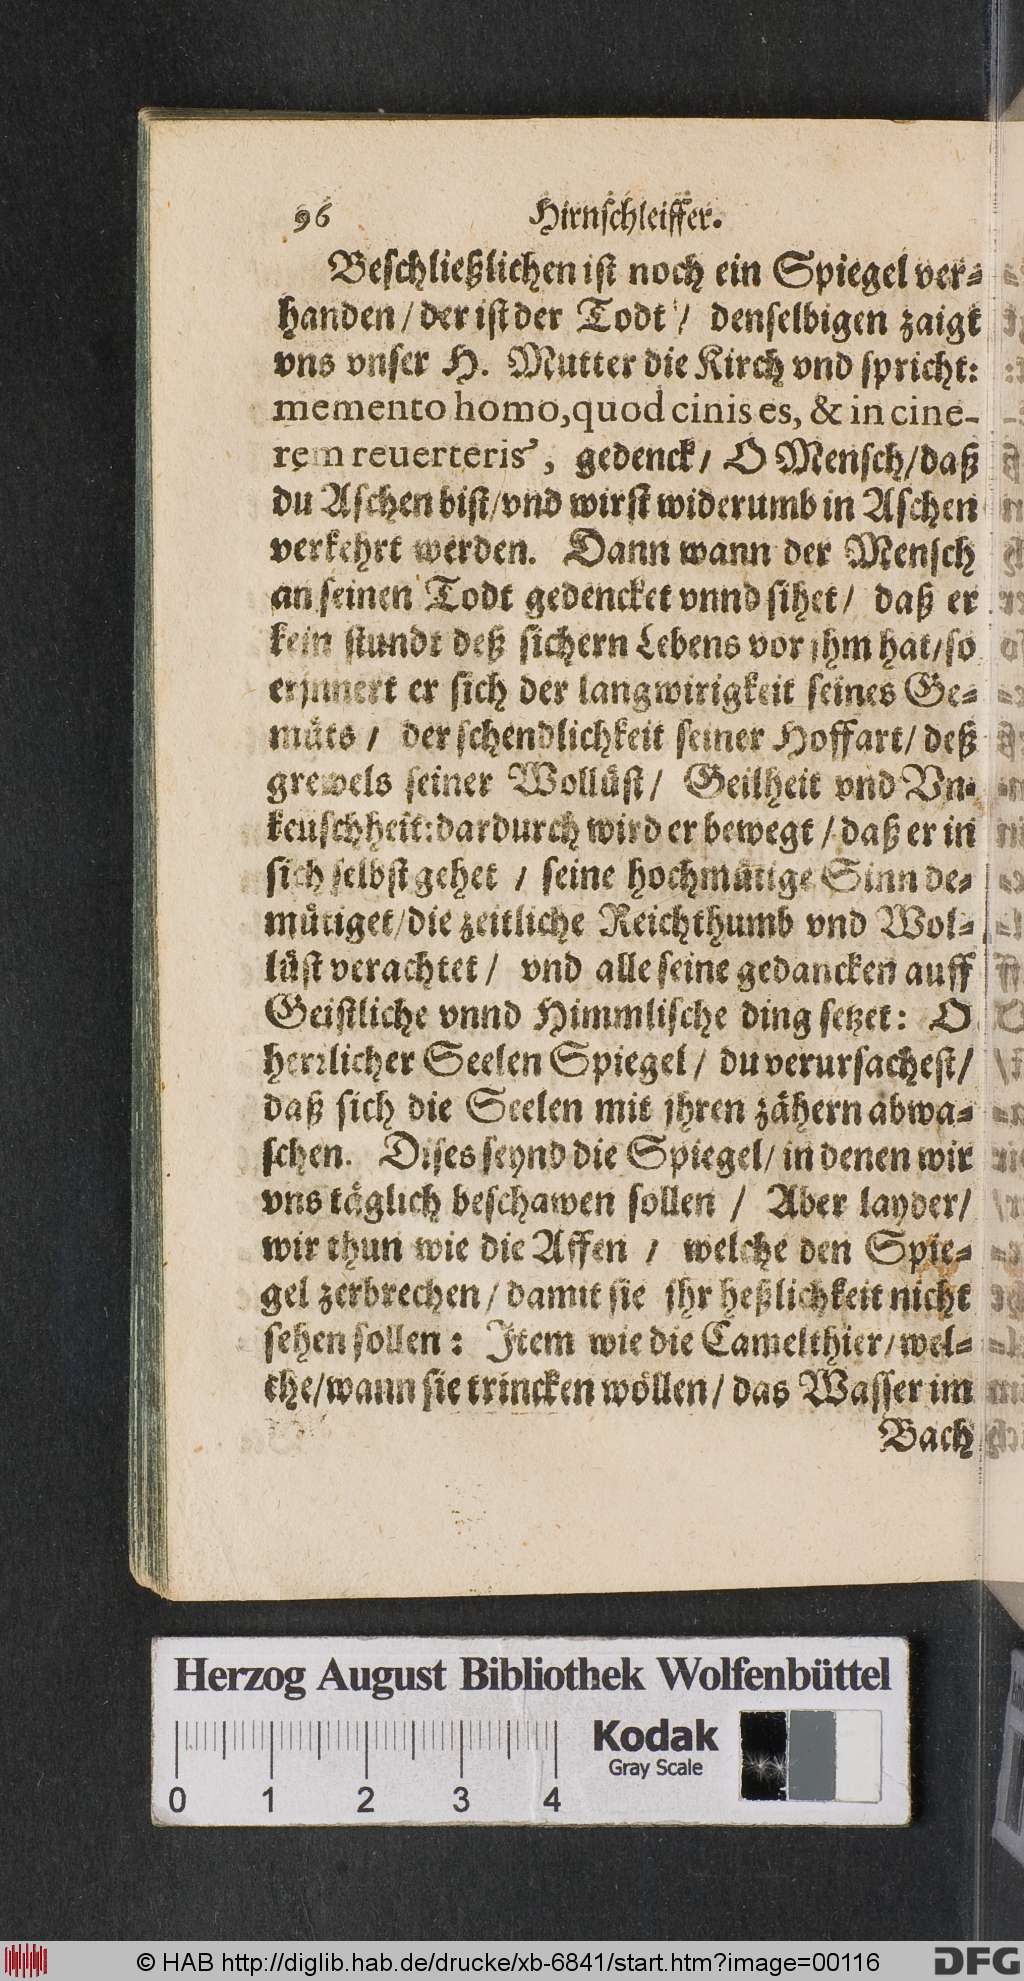 96 Hirnschleiffer.
Beschließlichen ist noch ein Spiegel ver-
handen / der ist der Todt / denselbigen zaigt
vns vnser H. Mutter die Kirch vnd spricht:
memento homo, quod cinis es, & in cine-
rem reuerteris, gedenck / O Mensch / daß
du Aschen bist / vnd wirst widerumb in Aschen
verkehrt werden. Dann wann der Mensch
an seinen Todt gedencket vnnd sihet / daß er
kein stundt deß sichern Lebens vor jhm hat / so
erjnnert er sich der langwirigkeit seines Ge-
müts / der schendlichkeit seiner Hoffart / deß
grewels seiner Wollüst / Geilheit vnd Vn-
keuschheit: dardurch wird er bewegt / daß er in
sich selbst gehet / seine hochmütige Sinn de-
mütiget / die zeitliche Reichthumb vnd Wol-
lüst verachtet / vnd alle seine gedancken auff
Geistliche vnnd Himmlische ding setzet: O
herrlicher Seelen Spiegel / du verursachest /
daß sich die Seelen mit jhren zähern abwa-
schen. Dises seynd die Spiegel / in denen wir
vns täglich beschawen sollen / Aber layder /
wir thun wie die Affen / welche den Spie-
gel zerbrechen / damit sie jhr heßlichkeit nicht
sehen sollen: Item wie die Camelthier / wel-
che / wann sie trincken wöllen / das Wasser im
Bach
Herzog August Bibliothek Wolfenbüttel
Kodak
Gray Scale
0 1 2 3 4
© HAB http://diglib.hab.de/drucke/xb-6841/start.htm?image=00116
DFG